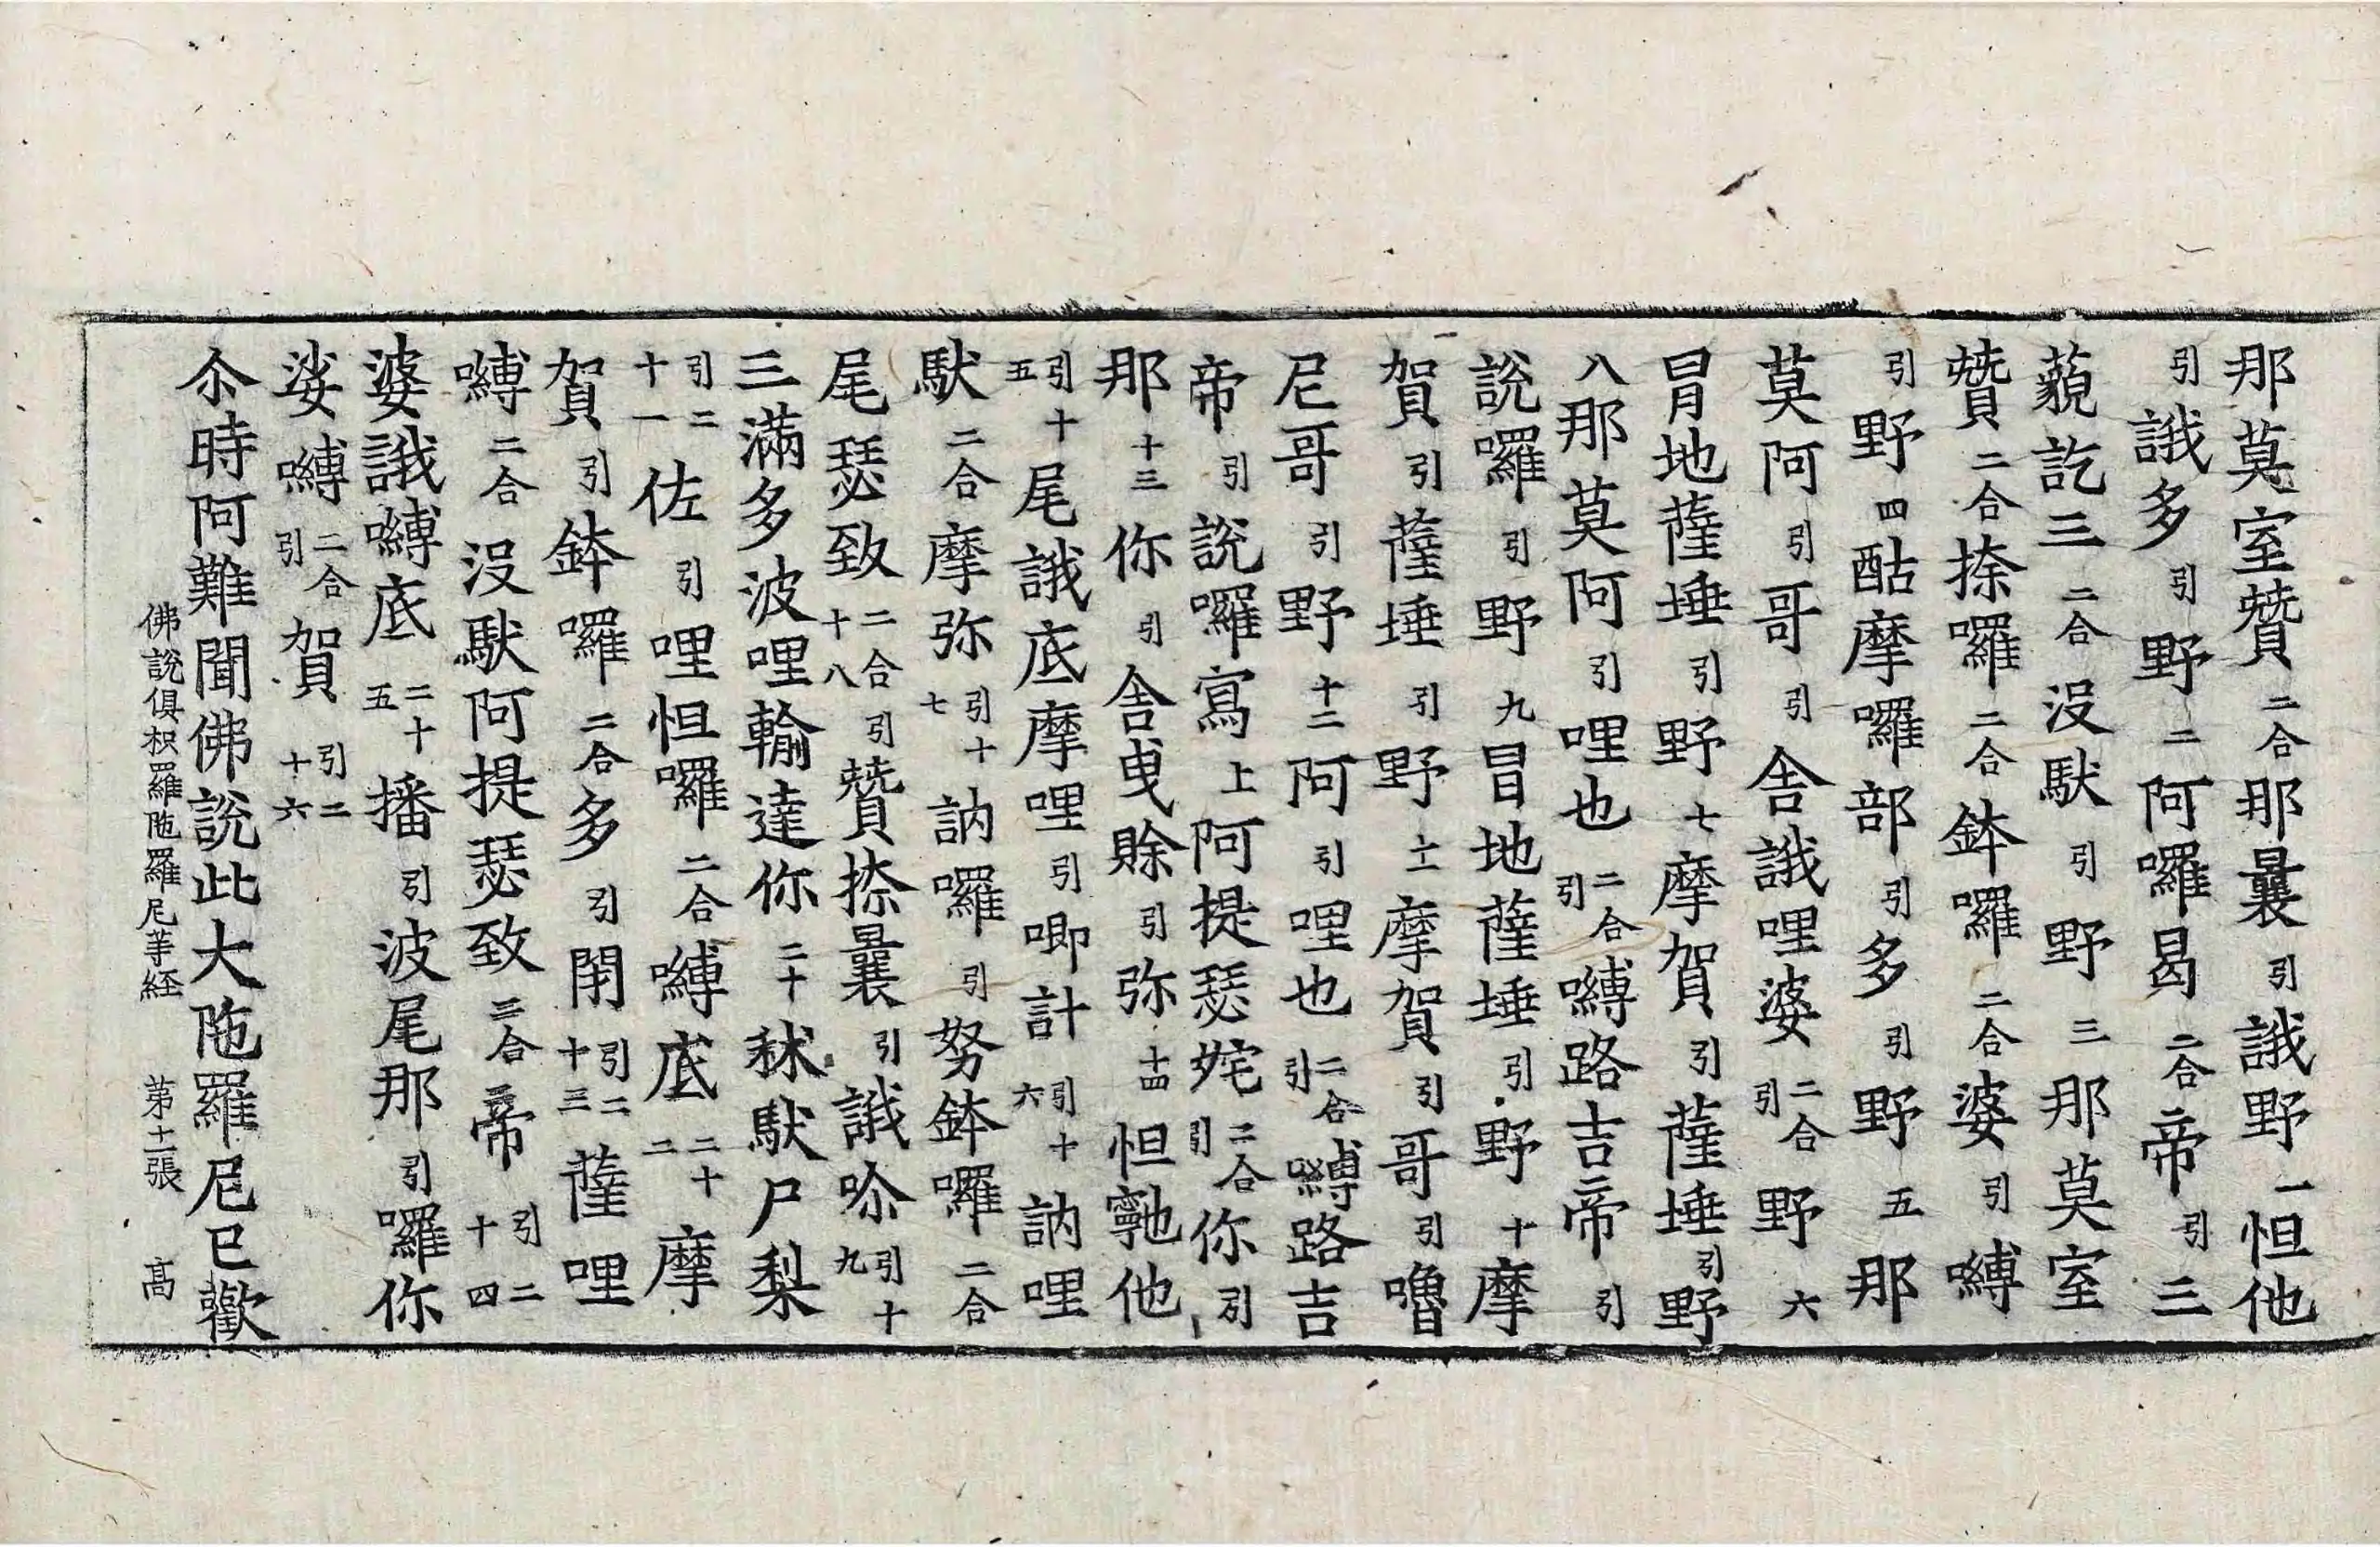 那莫室贊二合那曩引誐野一怛他
引誐多引野二阿囉曷二合帝引三
藐訖三二合沒馱引野三那莫室
贊二合捺囉二合鉢囉二合婆引嚩
引野四酤摩囉部引多引野五那
莫阿引哥引舍誐哩婆二合引野六
冐地薩埵引野七摩賀引薩埵引野
八那莫阿引哩也二合引嚩路吉帝引
說囉引野九冒地薩埵引野十摩
賀引薩埵引野十一摩賀引哥引嚕
尼哥引野十二阿引哩也二合引嚩路吉
帝引說囉寫上阿提瑟姹二合引你引
那十三你引舍曳賒引弥十四怛𩕳他
引十五尾誐底摩哩引唧計引十六訥哩
馱二合摩弥引十七訥囉引努鉢囉二合
尾瑟致二合引十八贊捺曩引誐嚩引十九
三滿多波哩輸達你二十秫馱尸梨
引二十一佐引哩怛囉二合嚩底二十二摩
賀引鉢囉二合多引閉引二十三薩哩
嚩二合沒馱阿提瑟致二合帝引二十四
婆誐嚩底二十五播引波尾那引囉你
娑嚩二合引賀引二十六
尒時阿難聞佛說此大陁羅尼已歡
佛說俱枳羅陁羅尼等経 第十二張 髙